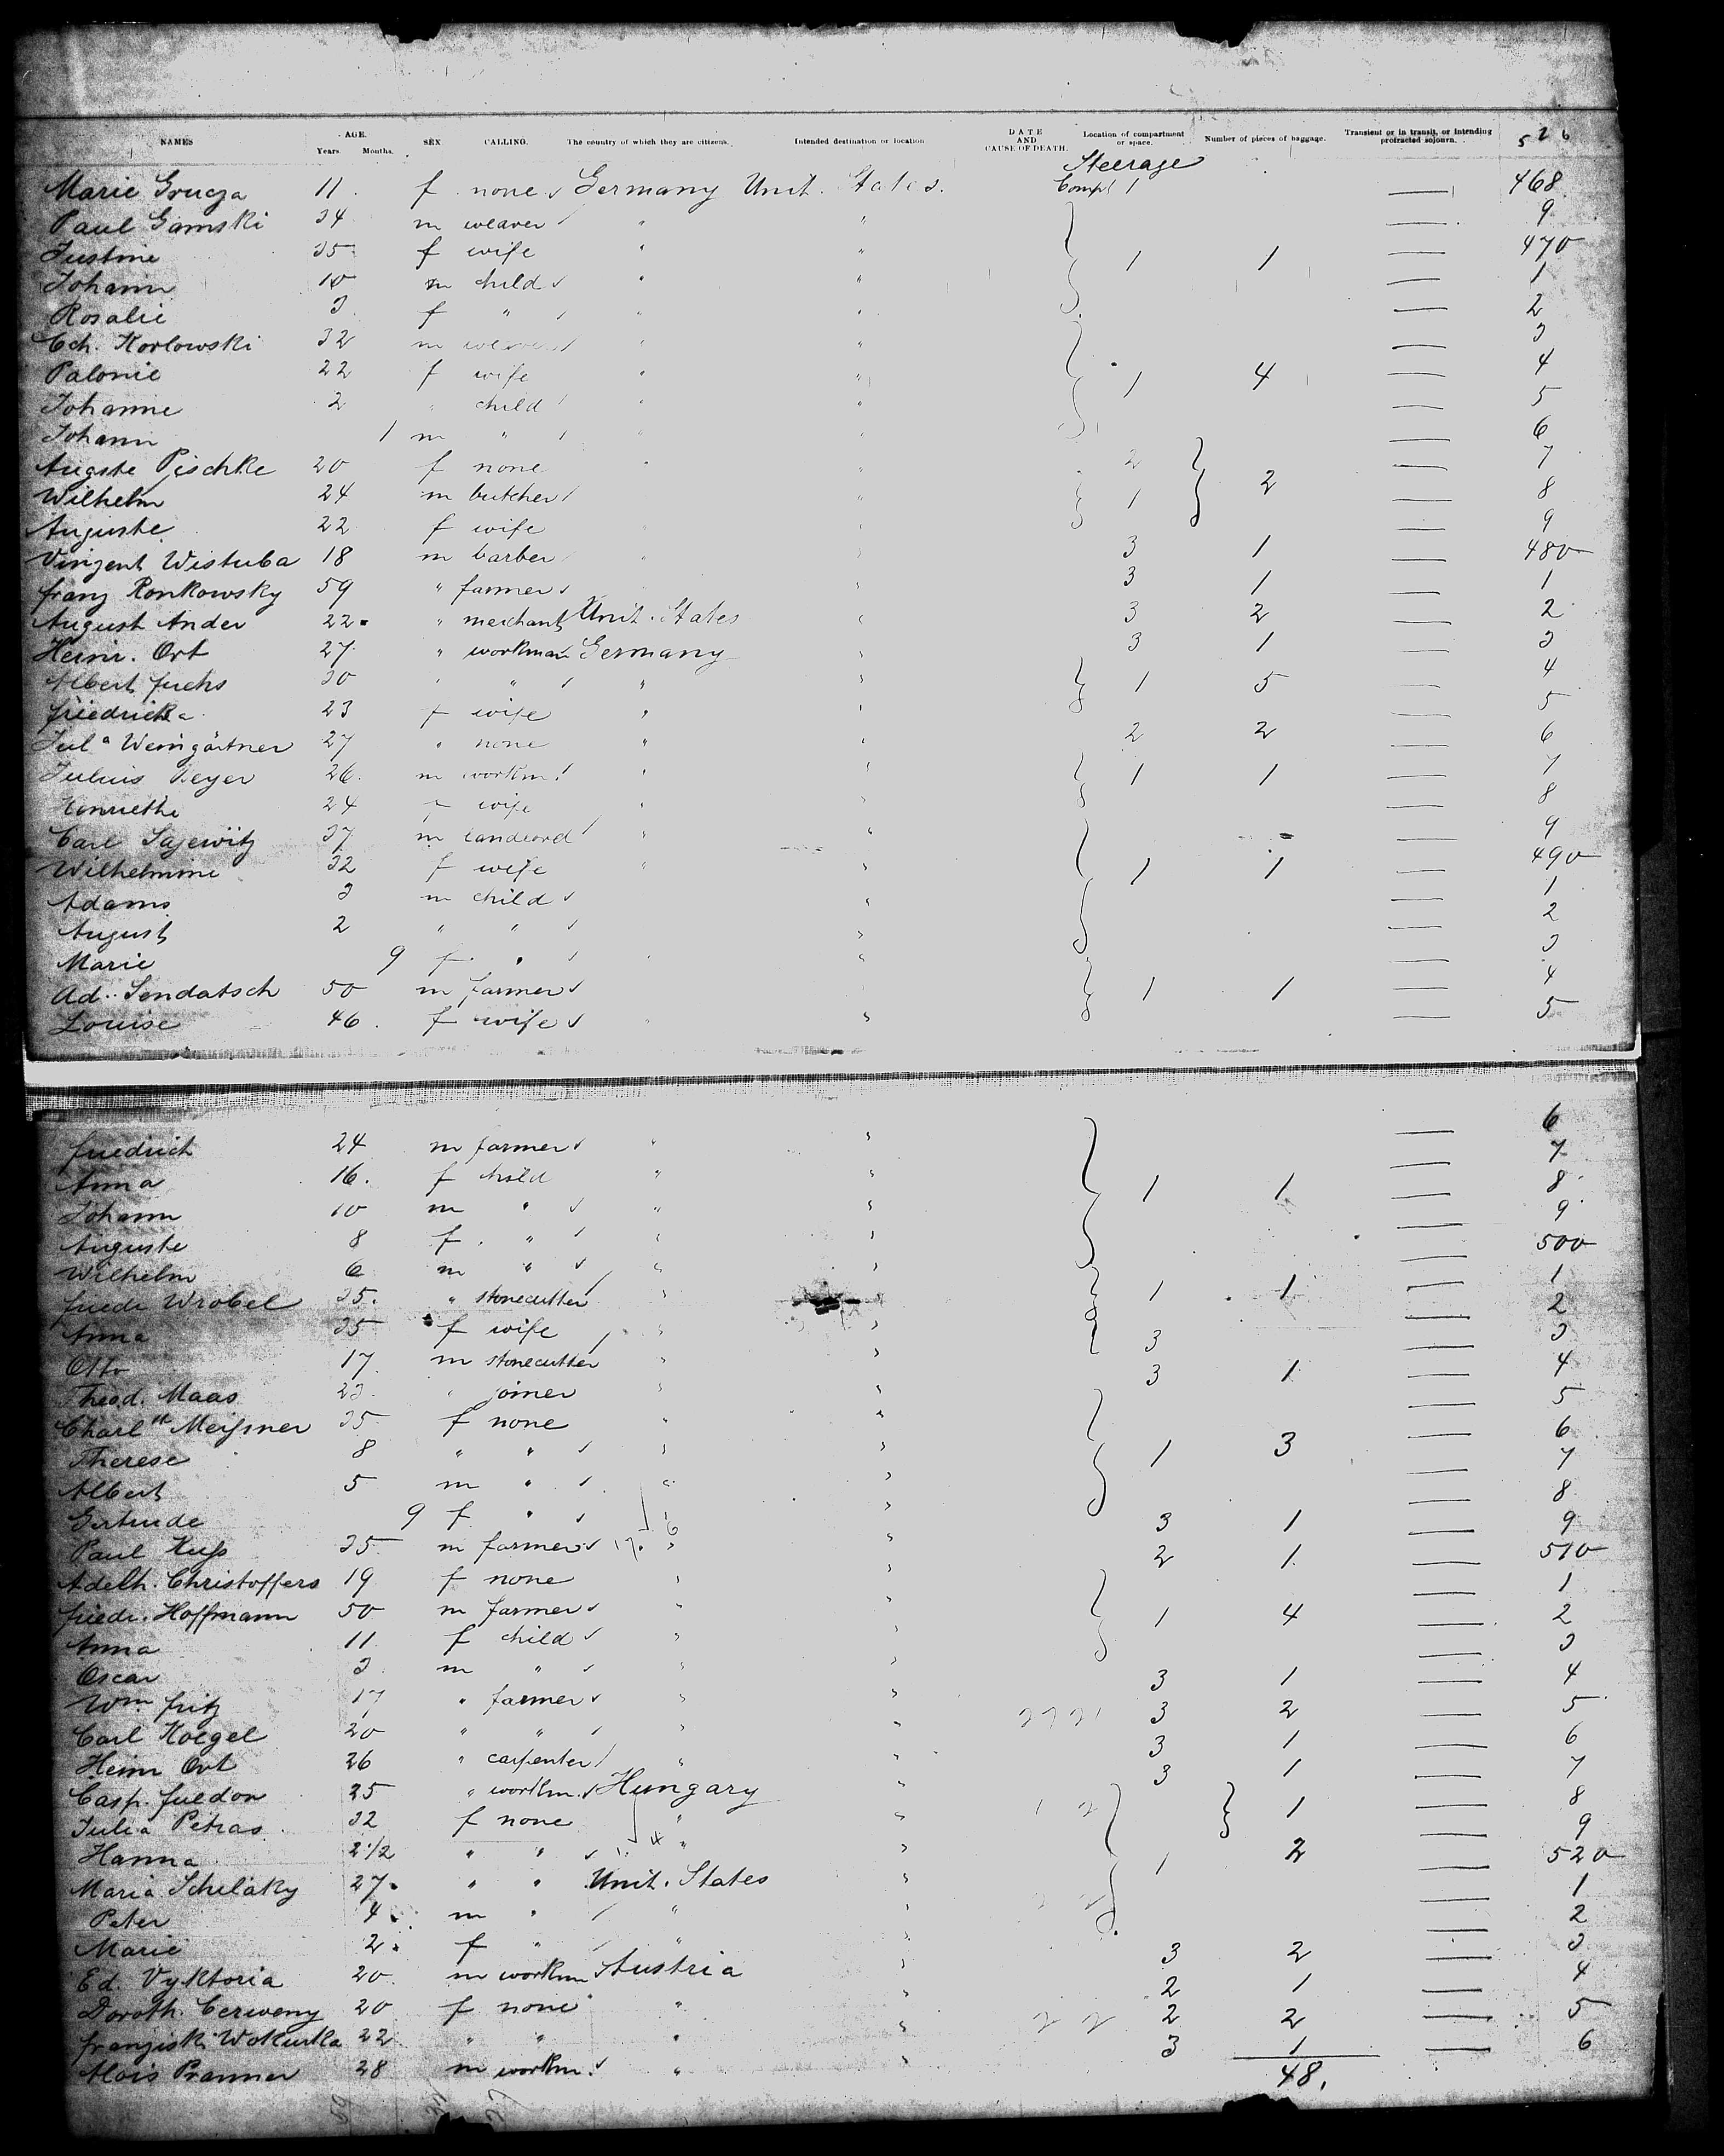 NAMES AGE. Years. Months. SEX CALLING. The country of which they are citizens. Intended destination or location DATE AND CAUSE OF DEATH. Location of compartment or space. Number of pieces of baggage. Transient or in transit, or intending protracted sojourn. 526
Steerage
Marie Grucza 11 f none Germany Unit. States. Compt 1 — 468
Paul Gamski 34 m weaver " " — 9
Justine 35 f wife " " 1 1 — 470
Johann 10 m child " " — 1
Rosalie 3 f " " " — 2
Cch. Korlowski 32 m weaver " " — 3
Palonie 22 f wife " " 1 4 — 4
Johanne 2 " child " " — 5
Johann 1 m " " " — 6
Auguste Pischke 20 f none " " 2 — 7
Wilhelm 24 m butcher " 1 2 — 8
Auguste 22 f wife " " — 9
Vinzent Wistuba 18 m barber " " 3 1 — 480
Franz Ronkowsky 59 " farmer " 3 1 — 1
August Ander 22 " merchant Unit. States " 3 2 — 2
Heinr. Ort 27 " workman Germany " 3 1 — 3
Albert Fuchs 30 " " " " 1 5 — 4
Friedricka 23 f wife " " — 5
Jul a Weingärtner 27 " none " " 2 2 — 6
Julius Beyer 26 m workm. " " 1 1 — 7
Henriette 24 f wife " " — 8
Carl Sajewitz 37 m landlord " " — 9
Wilhelmine 32 f wife " " 1 1 — 490
Adams 3 m child " — 1
August 2 " " " — 2
Marie 9 f " " " — 3
Ad. Sendatsch 50 m farmer 1 1 — 4
Louise 46 f wife " " — 5
Friedrich 24 m farmer " " — 6
Anna 16 f child " " 1 1 — 7
Johann 10 m " " " — 8
Auguste 8 f " " " — 9
Wilhelm 6 m " " " — 500
Friedr Wrobel 35 " stonecutter " " 1 1 — 1
Anna 35 f wife " " — 2
Otto 17 m stonecutter " " 3 — 3
Theod. Maas 23 " joiner " " 3 1 — 4
Charl tt Meißner 35 f none " " — 5
Therese 8 " " " " 1 3 — 6
Albert 5 m " " " — 7
Gertrude 9 f " " " — 8
Paul Huß 35 m farmer " " 3 1 — 9
Adelh. Christoffers 19 f none " " 2 1 — 510
Friedr. Hoffmann 50 m farmer " " — 1
Anna 11 f child " " 1 4 — 2
Oscar 3 m " " " — 3
Wm. Fritz 17 " farmer " " 3 1 — 4
Carl Koegel 20 " " " " 3 2 — 5
Heinr Ort 26 " carpenter " " 3 1 — 6
Casp. 25 " workm. Hungary " 3 1 — 7
Julia Petras 32 f none " " 1 — 8
Hanna 2 1/2 " " " " — 9
Maria Schelaky 27 " " Unit. States " 1 2 — 520
Peter 4 m " " " — 1
Marie 2 f " " — 2
Ed. Vyktoria 20 m workm Austria " 3 2 — 3
Doroth. Cerweny 20 f none " " 2 1 — 4
Franziski Wokurka 22 " " " " 2 2 — 5
Alois Pranner 28 m workm. " " 3 1 — 6
48.